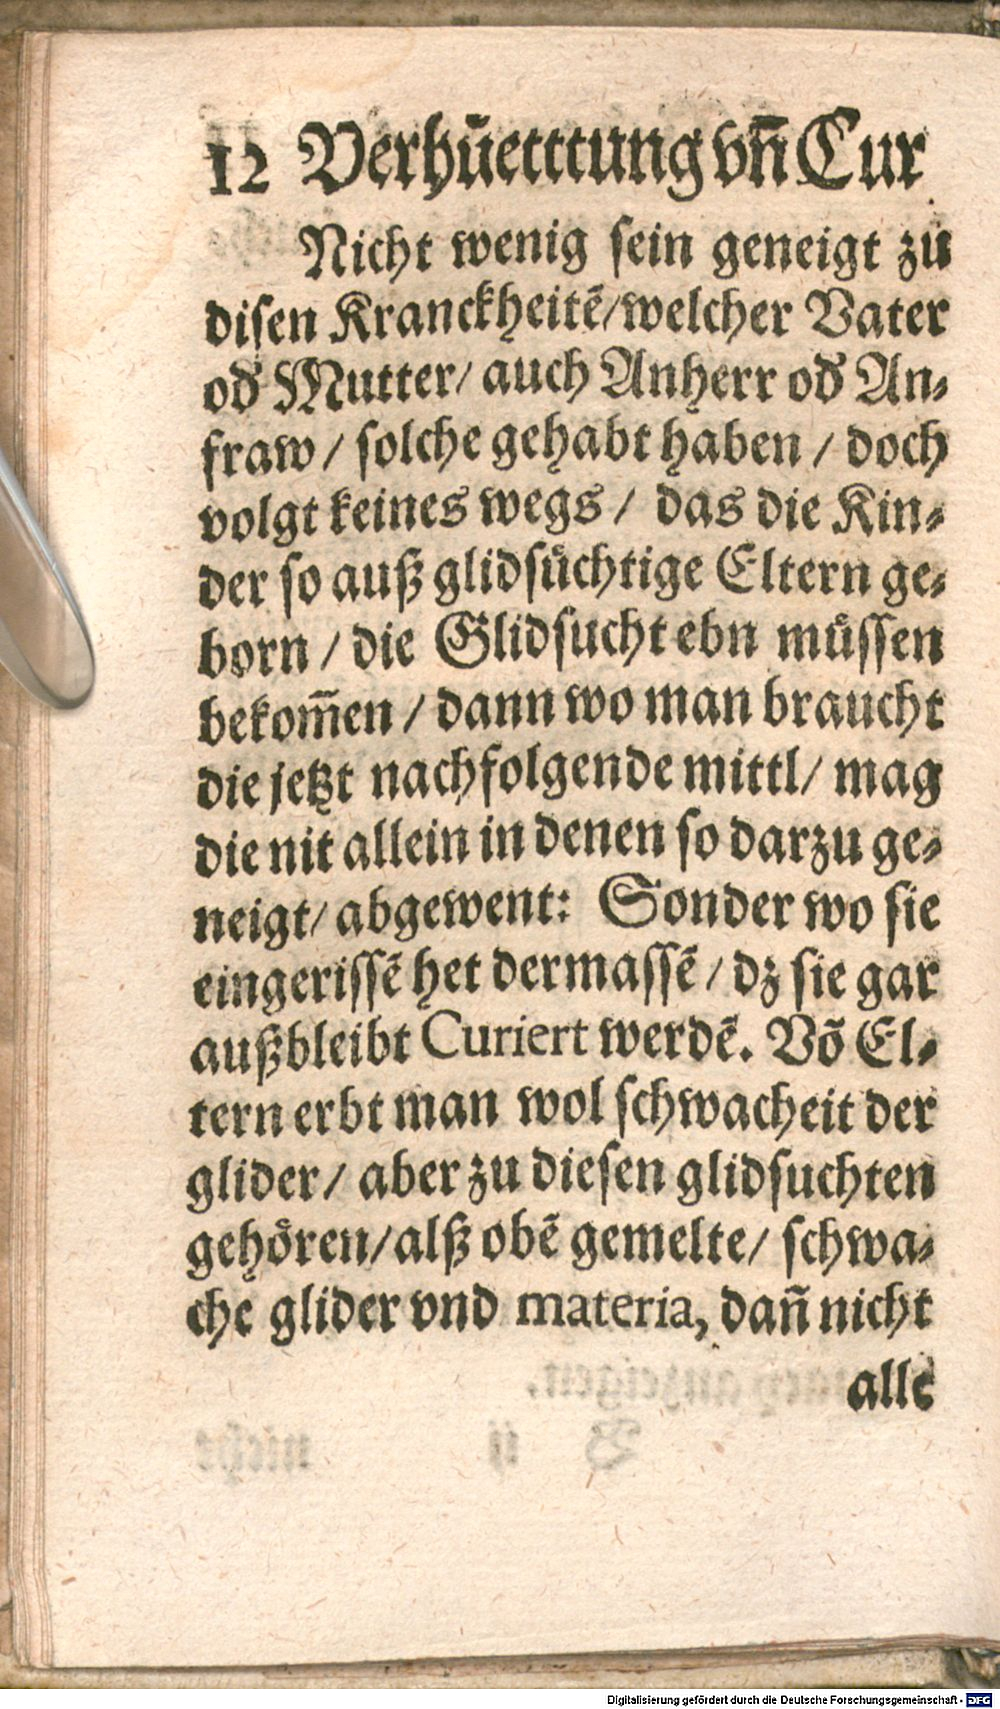 12 Verhuͤetttung vñ Cur
Nicht wenig sein geneigt zu
disen Kranckheitẽ/welcher Vater
od Mutter/ auch Anherr od An⸗
fraw / solche gehabt haben / doch
volgt keines wegs / das die Kin⸗
der so auß glidsuͤchtige Eltern ge⸗
born / die Glidsucht ebn muͤssen
bekom̃en / dann wo man braucht
die jetzt nachfolgende mittl/ mag
die nit allein in denen so darzu ge⸗
neigt/ abgewent: Sonder wo sie
eingerissẽ het dermassẽ / dz sie gar
außbleibt Curiert werdẽ. Võ El⸗
tern erbt man wol schwacheit der
glider/ aber zu diesen glidsuchten
gehoͤren/alß obẽ gemelte/ schwa⸗
che glider vnd materia, dañ nicht
alle
Digitalisierung gefördert durch die Deutsche Forschungsgemeinschaft - DFG